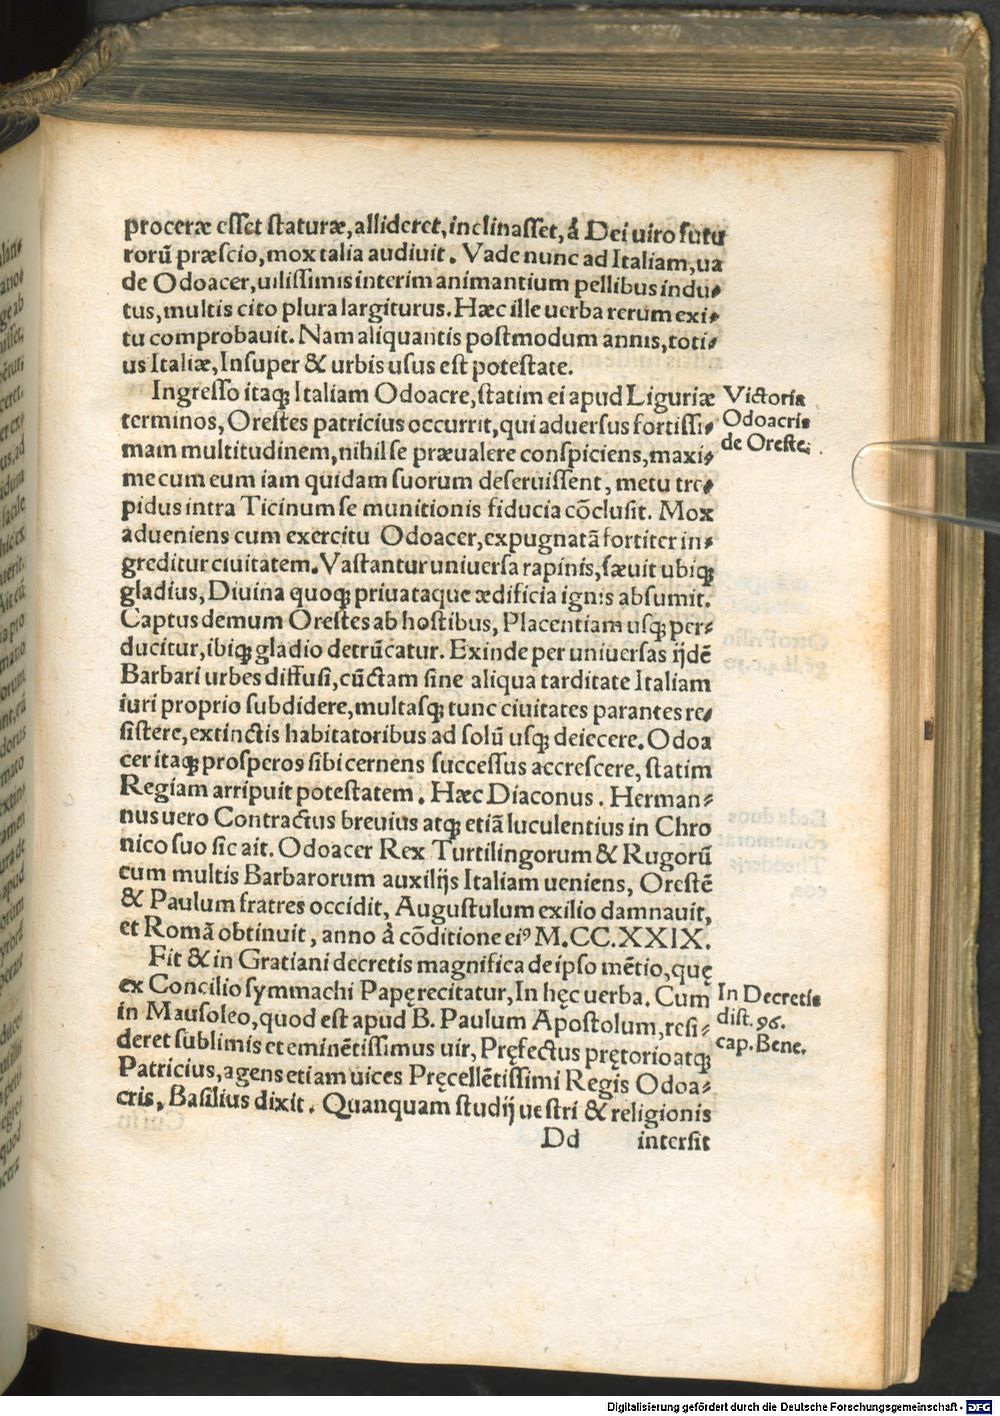 proceræ eſſet ſtaturæ, allideret, inclinaſſet, á Dei uiro futu
rorū præſcio, mox talia audiuit. Vade nunc ad Italiam, ua
de Odoacer, uiliſſimis interim animantium pellibus indu⸗
tus, multis cito plura largiturus. Hæc ille uerba rerum exi⸗
tu comprobauit. Nam aliquantis poſtmodum annis, toti⸗
us Italiæ, Inſuper & urbis uſus eſt poteſtate.
Ingreſſo itaqꝫ Italiam Odoacre, ſtatim ei apud Liguriæ
terminos, Oreſtes patricius occurrit, qui aduerſus fortiſſi⸗
mam multitudinem, nihil ſe præualere conſpiciens, maxi⸗
me cum eum iam quidam ſuorum deſeruiſſent, metu tre⸗
pidus intra Ticinum ſe munitionis fiducia cōcluſit. Mox
adueniens cum exercitu Odoacer, expugnatā fortiter in⸗
greditur ciuitatem. Vaſtantur uniuerſa rapinis, ſæuit ubiqꝫ
gladius, Diuina quoqꝫ priuataque ædificia ignis abſumit.
Captus demum Oreſtes ab hoſtibus, Placentiam uſqꝫ per⸗
ducitur, ibiqꝫ gladio detrūcatur. Exinde per uniuerſas ijdē
Barbari urbes diffuſi, cūctam ſine aliqua tarditate Italiam
iuri proprio ſubdidere, multaſqꝫ tunc ciuitates parantes re⸗
ſiſtere, extinctis habitatoribus ad ſolū uſqꝫ deiecere. Odoa
cer itaqꝫ proſperos ſibi cernens ſucceſſus accreſcere, ſtatim
Regiam arripuit poteſtatem. Hæc Diaconus. Herman⸗
nus uero Contractus breuius atqꝫ etiā luculentius in Chro
nico ſuo ſic ait. Odoacer Rex Turtilingorum & Rugorū
cum multis Barbarorum auxilijs Italiam ueniens, Oreſtē
& Paulum fratres occidit, Auguſtulum exilio damnauit,
et Romā obtinuit, anno à cōditione eiꝰ M.CC.XXIX.
Fit & in Gratiani decretis magnifica de ipſo mētio, quę
ex Concilio ſymmachi Papę recitatur, In hęc uerba. Cum
in Mauſoleo, quod eſt apud B. Paulum Apoſtolum, reſi⸗
deret ſublimis et eminētiſſimus uir, Pręfectus prętorio atqꝫ
Patricius, agens etiam uices Pręcellētiſſimi Regis Odoa⸗
cris, Baſilius dixit. Quanquam ſtudij ueſtri & religionis
Dd interſit
Victoria
Odoacris
de Oreſte.
In Decretis
diſt. 96.
cap. Bene.
Digitalisierung gefördert durch die Deutsche Forschungsgemeinschaft - DFG